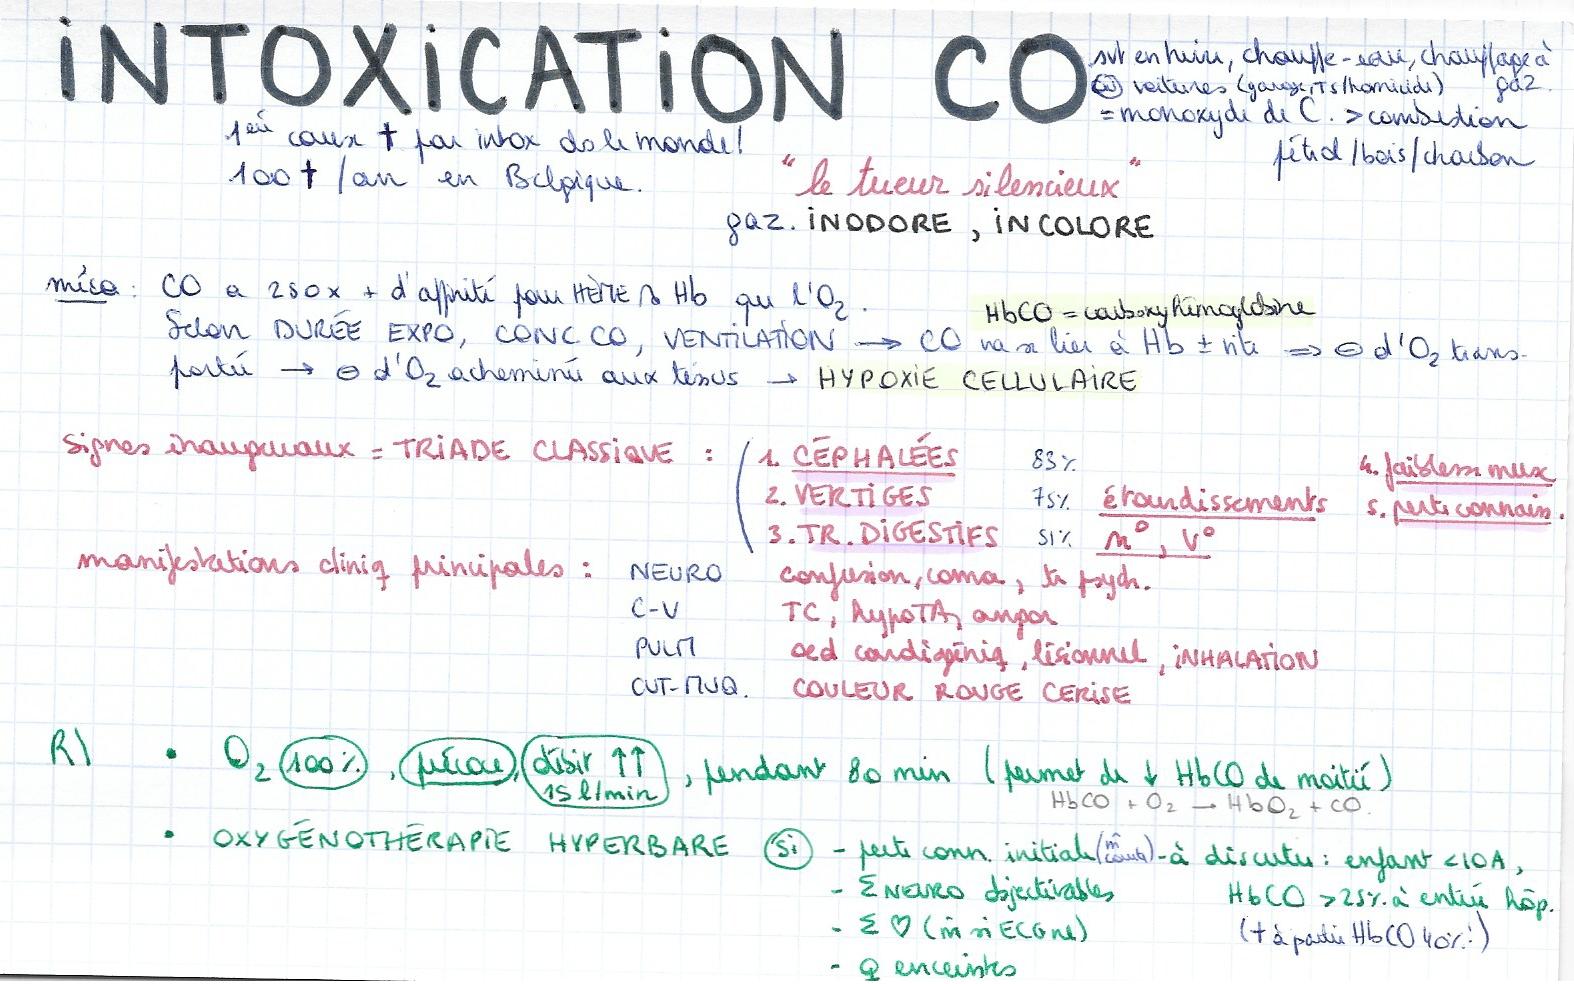 iNTOXiCATiON CO
svt en hiver, chauffe-eau, chauffage à gaz.
voitures (garage, TS/homicide)
= monoxyde de C. > combustion
pétrol/bois/charbon
1ère cause † par intox ds le monde!
100 † /an en Belgique.
"le tueur silencieux"
gaz. iNODORE, iNCOLORE
méca : CO a 250x + d'affinité pour HÈME ds Hb que l'O2.
HbCO = carboxyhémoglobine
Selon DURÉE EXPO, CONC CO, VENTiLATiON → CO va se lier à Hb ± vite ⇒ ⊖ d'O2 trans-
porté → ⊖ d'O2 acheminé aux tissus → HYPOXiE CELLULAiRE
Signes inauguraux = TRiADE CLASSiQUE :
1. CÉPHALÉES 83%
2. VERTiGES 75% étourdissements
3. TR. DiGESTiFS 51% n°, v°
4. faibless musc
5. perte connais.
manifestations cliniq principales :
NEURO confusion, coma, tr psych.
C-V TC, hypoTA, angor
PULM oed cardiogéniq, lésionnel, iNHALATiON
CUT-MUQ. COULEUR ROUGE CERiSE
R)
• O2 100%, précoce, débit ↑↑ 15 l/min, pendant 80 min (permet de ↓ HbCO de moitié)
HbCO + O2 → HbO2 + CO.
• OXYGÉNOTHÉRAPiE HYPERBARE si
- perte conn. initiale (m̂ courte)
- Σ NEURO objectivables
- Σ ♡ (m̂ si ECG nl)
- ♀ enceintes
- à discuter : enfant <10A,
HbCO >25% à entrée hôp.
(† à partir HbCO 40%!)